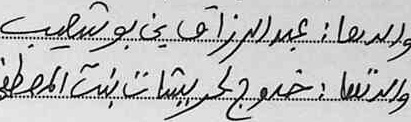 والدها: عبد الرزاق بن بوشعيب
والدتها: خدوج لحريشات بنت المصطفى